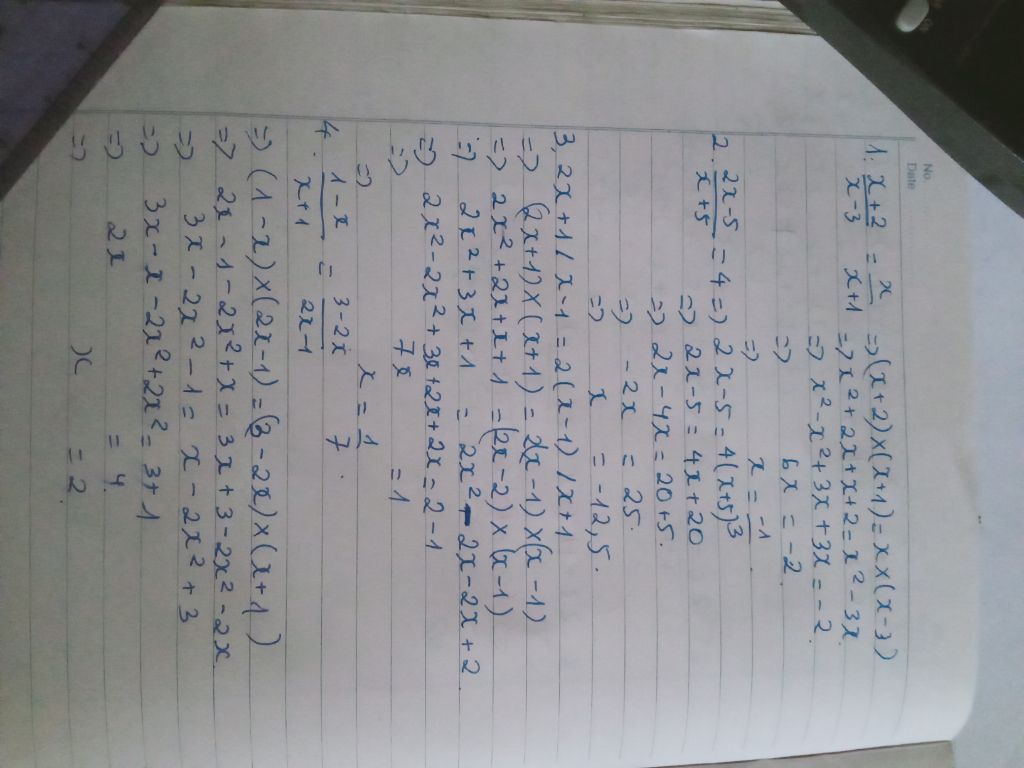 No.
Date
1. x+2/x-3 = x/x+1 => (x+2)×(x+1) = x×(x-3)
=> x²+2x+x+2 = x²-3x
=> x²-x²+3x+3x = -2
=> 6x = -2
=> x = -1/3
2. 2x-5/x+5 = 4 => 2x-5 = 4(x+5)
=> 2x-5 = 4x+20
=> 2x-4x = 20+5.
=> -2x = 25.
=> x = -12,5.
3, 2x+1/x-1 = 2(x-1)/x+1
=> (2x+1)×(x+1) = 2(x-1)×(x-1)
=> 2x²+2x+x+1 = (2x-2)×(x-1)
=> 2x²+3x+1 = 2x²-2x-2x+2
=> 2x²-2x²+3x+2x+2x = 2-1
=> 7x = 1
=> x = 1/7.
4. 1-x/x+1 = 3-2x/2x-1
=> (1-x)×(2x-1) = (3-2x)×(x+1)
=> 2x-1-2x²+x = 3x+3-2x²-2x
=> 3x-2x²-1 = x-2x²+3
=> 3x-x-2x²+2x² = 3+1
=> 2x = 4
=> x = 2